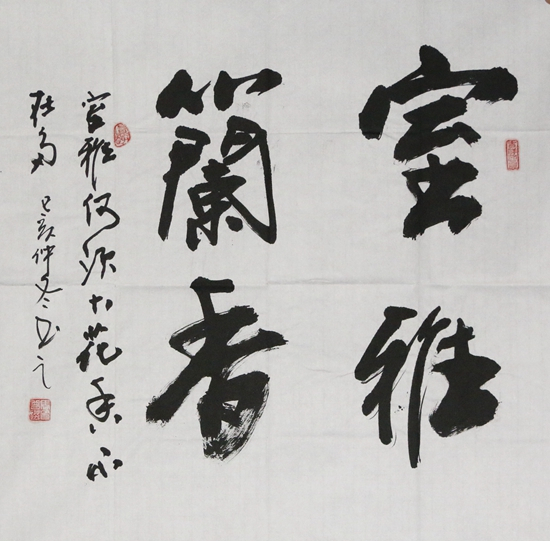 室雅
蘭香
室雅何须大花香不
在多 己亥仲冬书之